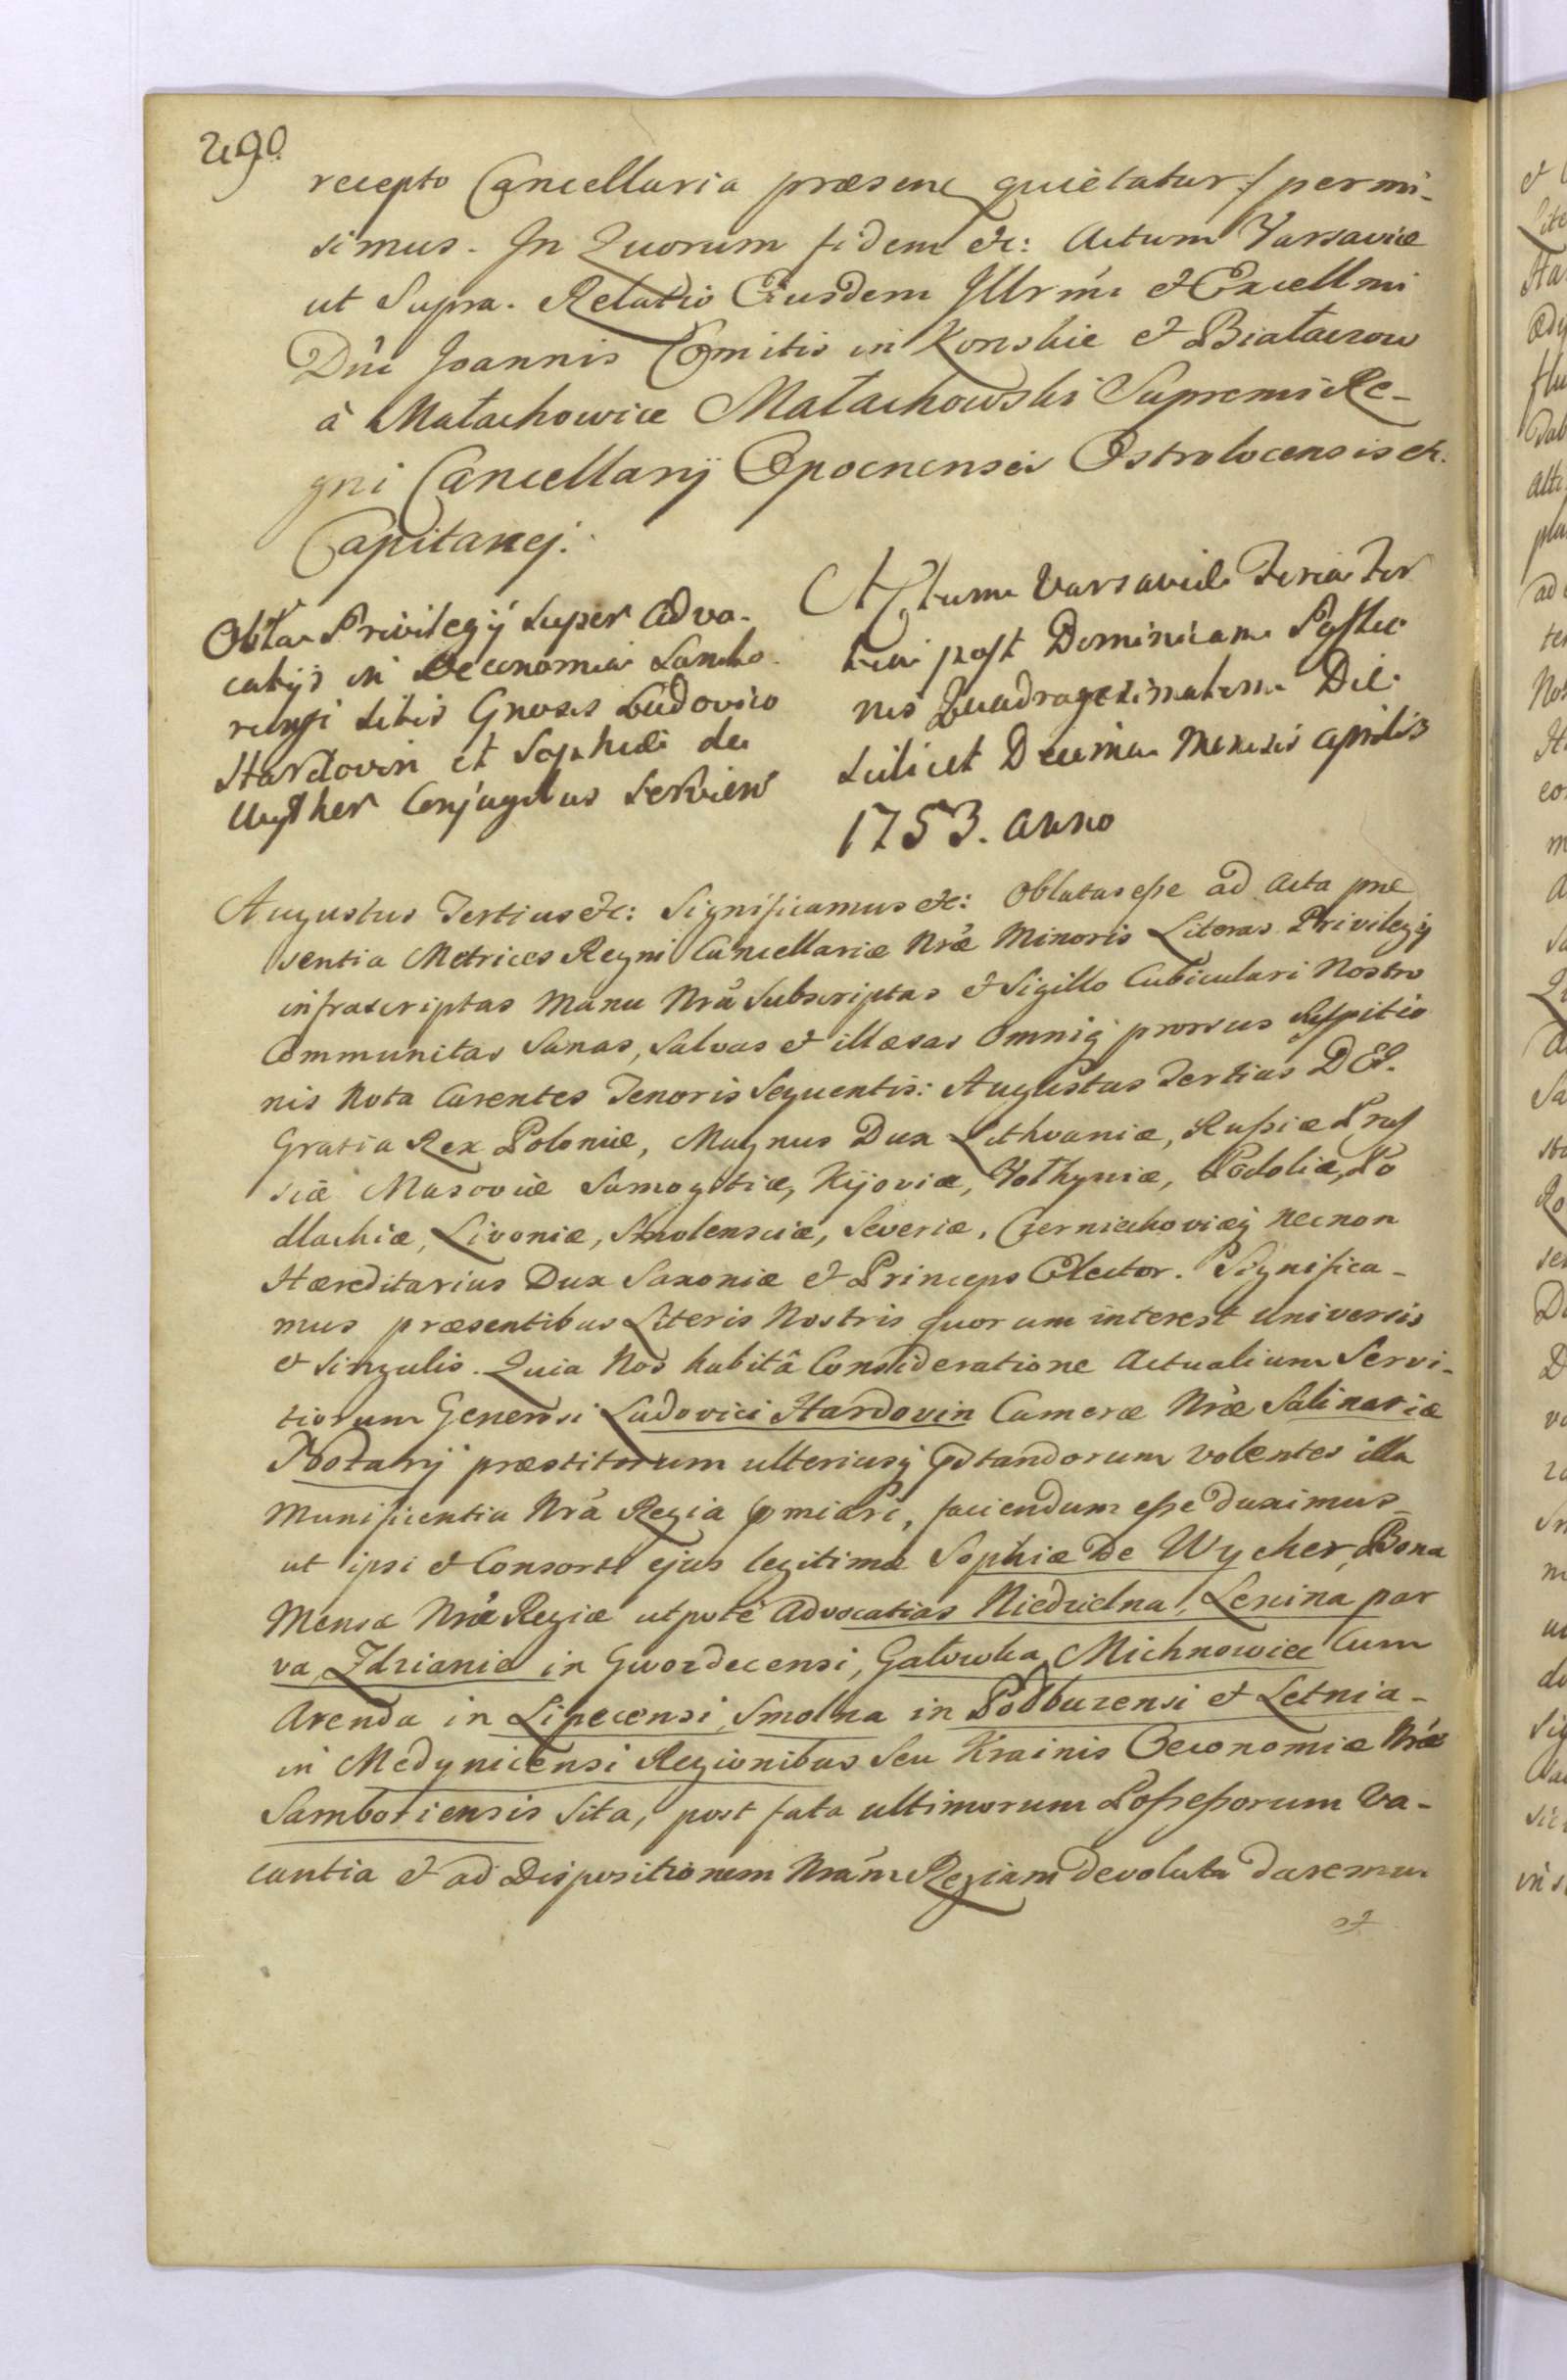 290
recepto Cancellaria præsens quietatur :/ permi-
simus. In Quorum fidem etc: Actum Varsaviæ
ut Supra. Relatio Eiusdem Illrmi et Excellmi
Dni Joannis Comitis in Konskie et Białaczow
à Małachowice Małachowski Supremi Re-
gni Cancellarij Opocnensis Ostrolocensis etc.
Capitanej.
Oblta Privilegij super Advo-
catijs in Oeconomia Sambo-
riensi sitis Gnosis Ludovico
Hardovin et Sophiæ de
Wycher Conjugibus Servien
Actum Varsaviæ Feria Ter
tia post Dominicam Passio
nis Quadragesimalem Die
Scilicet Decima Mensis Aprilis
1753. Anno
Augustus Tertius etc: Significamus etc: Oblatas esse ad Acta præ
sentia Metrices Regni Cancellariæ Nræ Minoris Literas Privilegij
infrascriptas Manu Nrâ Subscriptas et Sigillo Cubiculari Nostro
Communitas Sanas, Salvas et illæsas Omniq prorsus Suspitio
nis Nota Carentes Tenoris Sequentis: Augustus Tertius DEI.
Gratia Rex Poloniæ, Magnus Dux Lithvaniæ, Russiæ Prus
siæ Masoviæ Samogitiæ, Kijoviæ, Volhyniæ, Podoliæ, Po
dlachiæ, Livoniæ, Smolensciæ, Severiæ, Czerniechoviæq necnon
Hæreditarius Dux Saxoniæ et Princeps Elector. Significa-
mus præsentibus Literis Nostris quorum interest universis
et Singulis. Quia Nos habitâ Consideratione Actualium Servi-
tiorum Generosi Ludovici Hardovin Cameræ Nræ Salinariæ
Notarij præstitorum ulteriusq pstandorum volentes illa
Munificentia Nrâ Regia pmiari, faciendum esse duximus
ut ipsi et Consorti ejus legitimæ Sophiæ De Wycher, Bona
Mensæ Nræ Regiæ utpote Advocatias Niedzielna, Lenina par
va, Zdzianie in Gwozdecensi, Gałowka, Michnowiec Cum
Arenda in Lipecensi, Smolna in Podbuzensi et Letnia
in Medynicensi Regionibus Seu Krainis Oeconomiæ Nræ
Samboriensis Sita, post fata ultimorum Possessorum Va-
cantia et ad Dispositionem Nram Regiam devoluta daremus
et